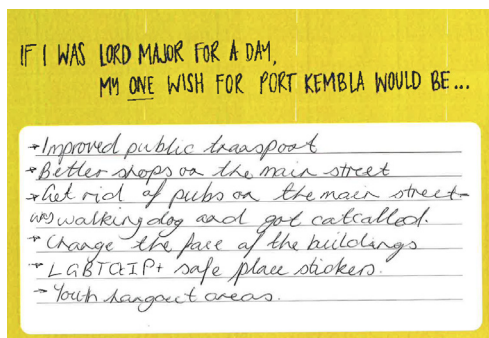 IF I WAS LORD MAJOR FOR A DAY,
MY ONE WISH FOR PORT KEMBLA WOULD BE...
→Improved public transport
→Better shops on the main street
→Get rid of pubs on the main street-
was walking dog and got catcalled.
→ Change the face of the buildings
→ LGBTQIP+ safe place stickers.
→ Youth hangout areas.